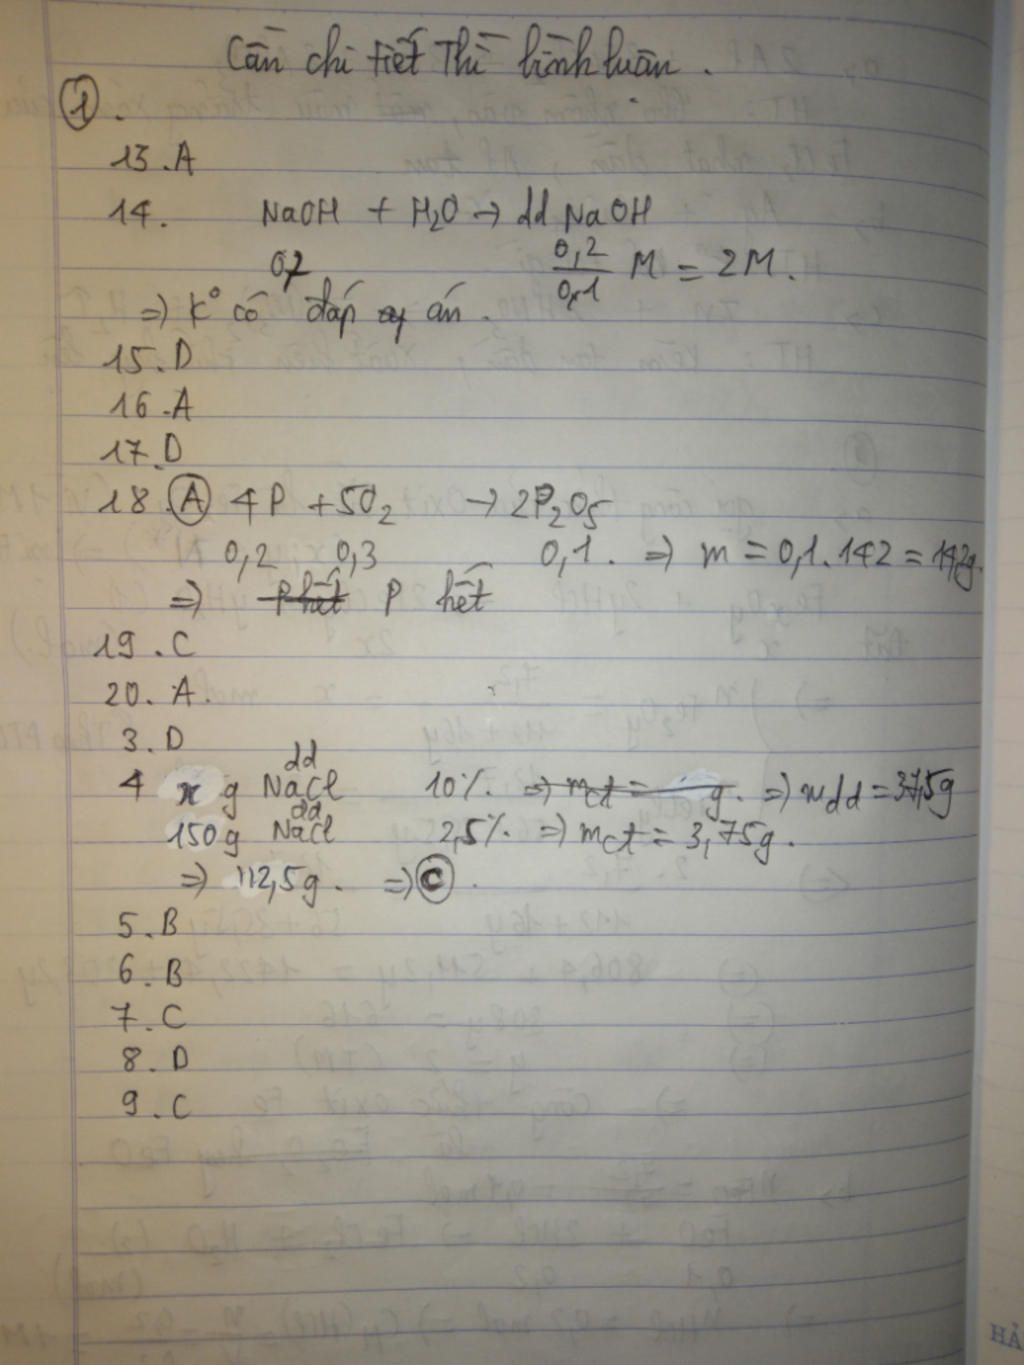 Cần chi tiết thì bình luận.
①.
13. A
14. NaOH + H2O → dd NaOH
0,2 0,2/0,1 M = 2M.
=> K° có đáp án.
15. D
16. A
17. D
18. Ⓐ 4P + 5O2 → 2P2O5
0,2 0,3 0,1. => m = 0,1.142 = 14,2g.
=> P hết P hết
19. C
20. A.
3. D
4 x g dd NaCl 10% => mct = g. => mdd = 37,5g
150g dd NaCl 2,5% => mct = 3,75g.
=> 112,5g. => Ⓒ.
5. B
6. B
7. C
8. D
9. C
HẢ